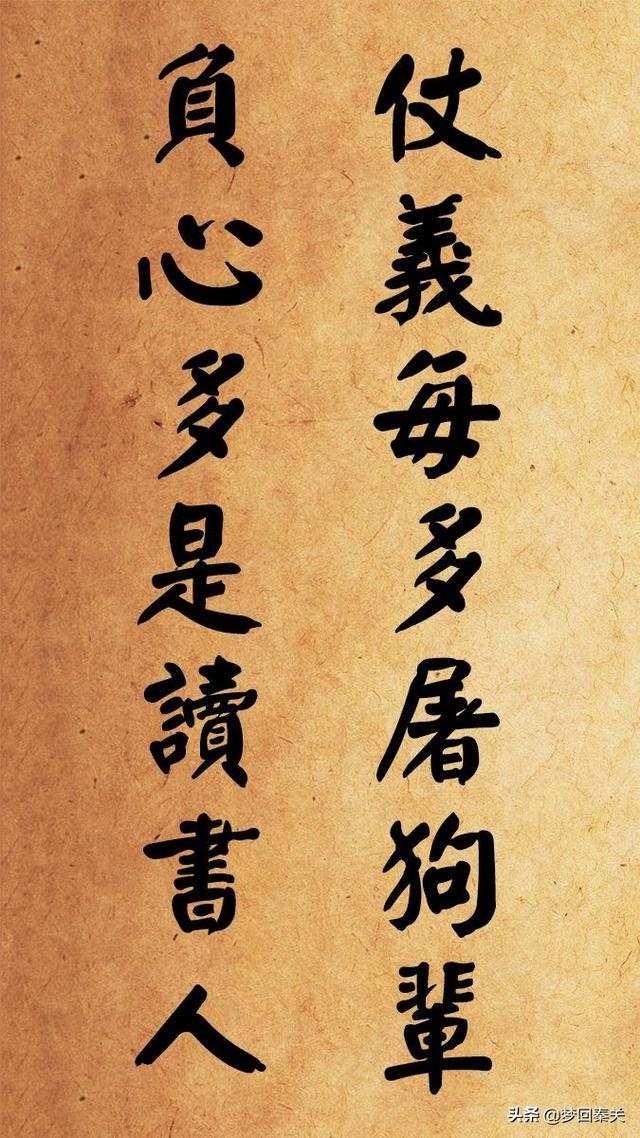 仗義每多屠狗輩
負心多是讀書人
头条 @梦回秦关